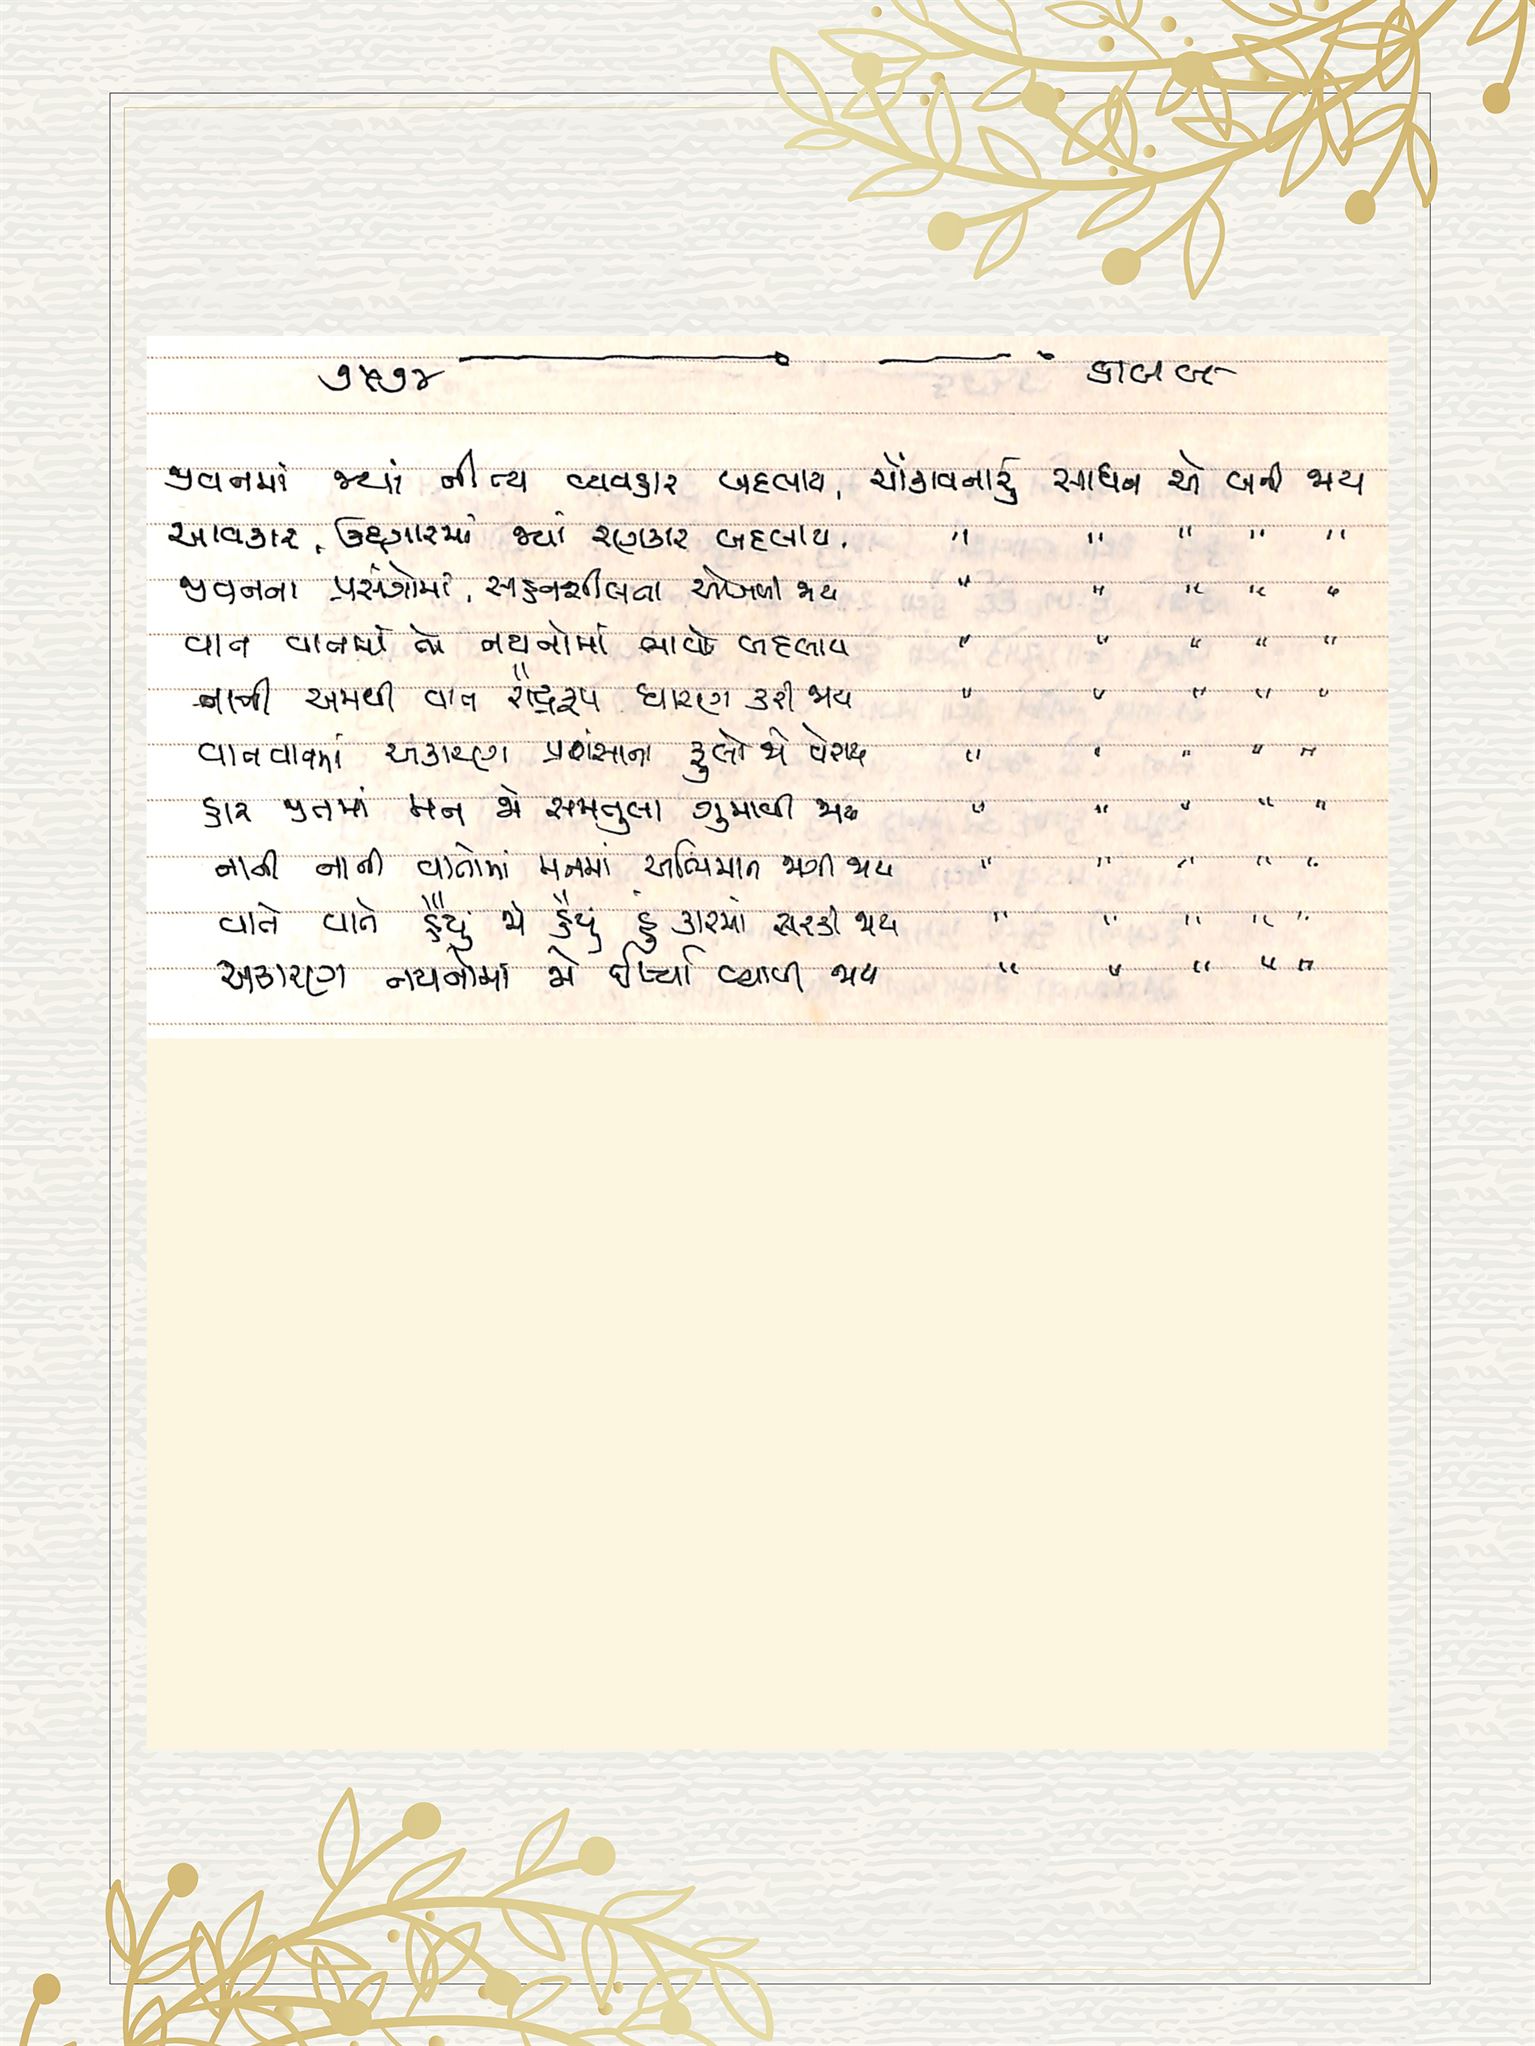 જીવનમાં જ્યાં નીત્ય વ્યવહાર બદલાય, ચોંકાવનારું સાધન એ બની જાય
આવકાર, ઉદ્દગારમાં જ્યાં રણકાર બદલાય. " " " " "
જીવનના પ્રસંગોમાં, સહનશીલતા ઓગળી જાય " " " " "
વાત વાતમાં જો નયનોમાં ભાવો બદલાય " " " " "
નાની અમથી વાત રૌદ્રરૂપ ધારણ કરી જાય " " " " "
વાતવાતમાં અકારણ પ્રશંસાના ફુલો જો વેરાય " " " " "
હાર જીતમાં મન જો સમતુલા ગુમાવી જાય " " " " "
નાની નાની વાતોમાં મનમાં અભિમાન જાગી જાય " " " " "
વાતે વાતે હૈયું જો હૈયું હું કારમાં સરકી જાય " " " " "
અકારણ નયનોમાં જો ઈર્ષ્યા વ્યાપી જાય " " " " "